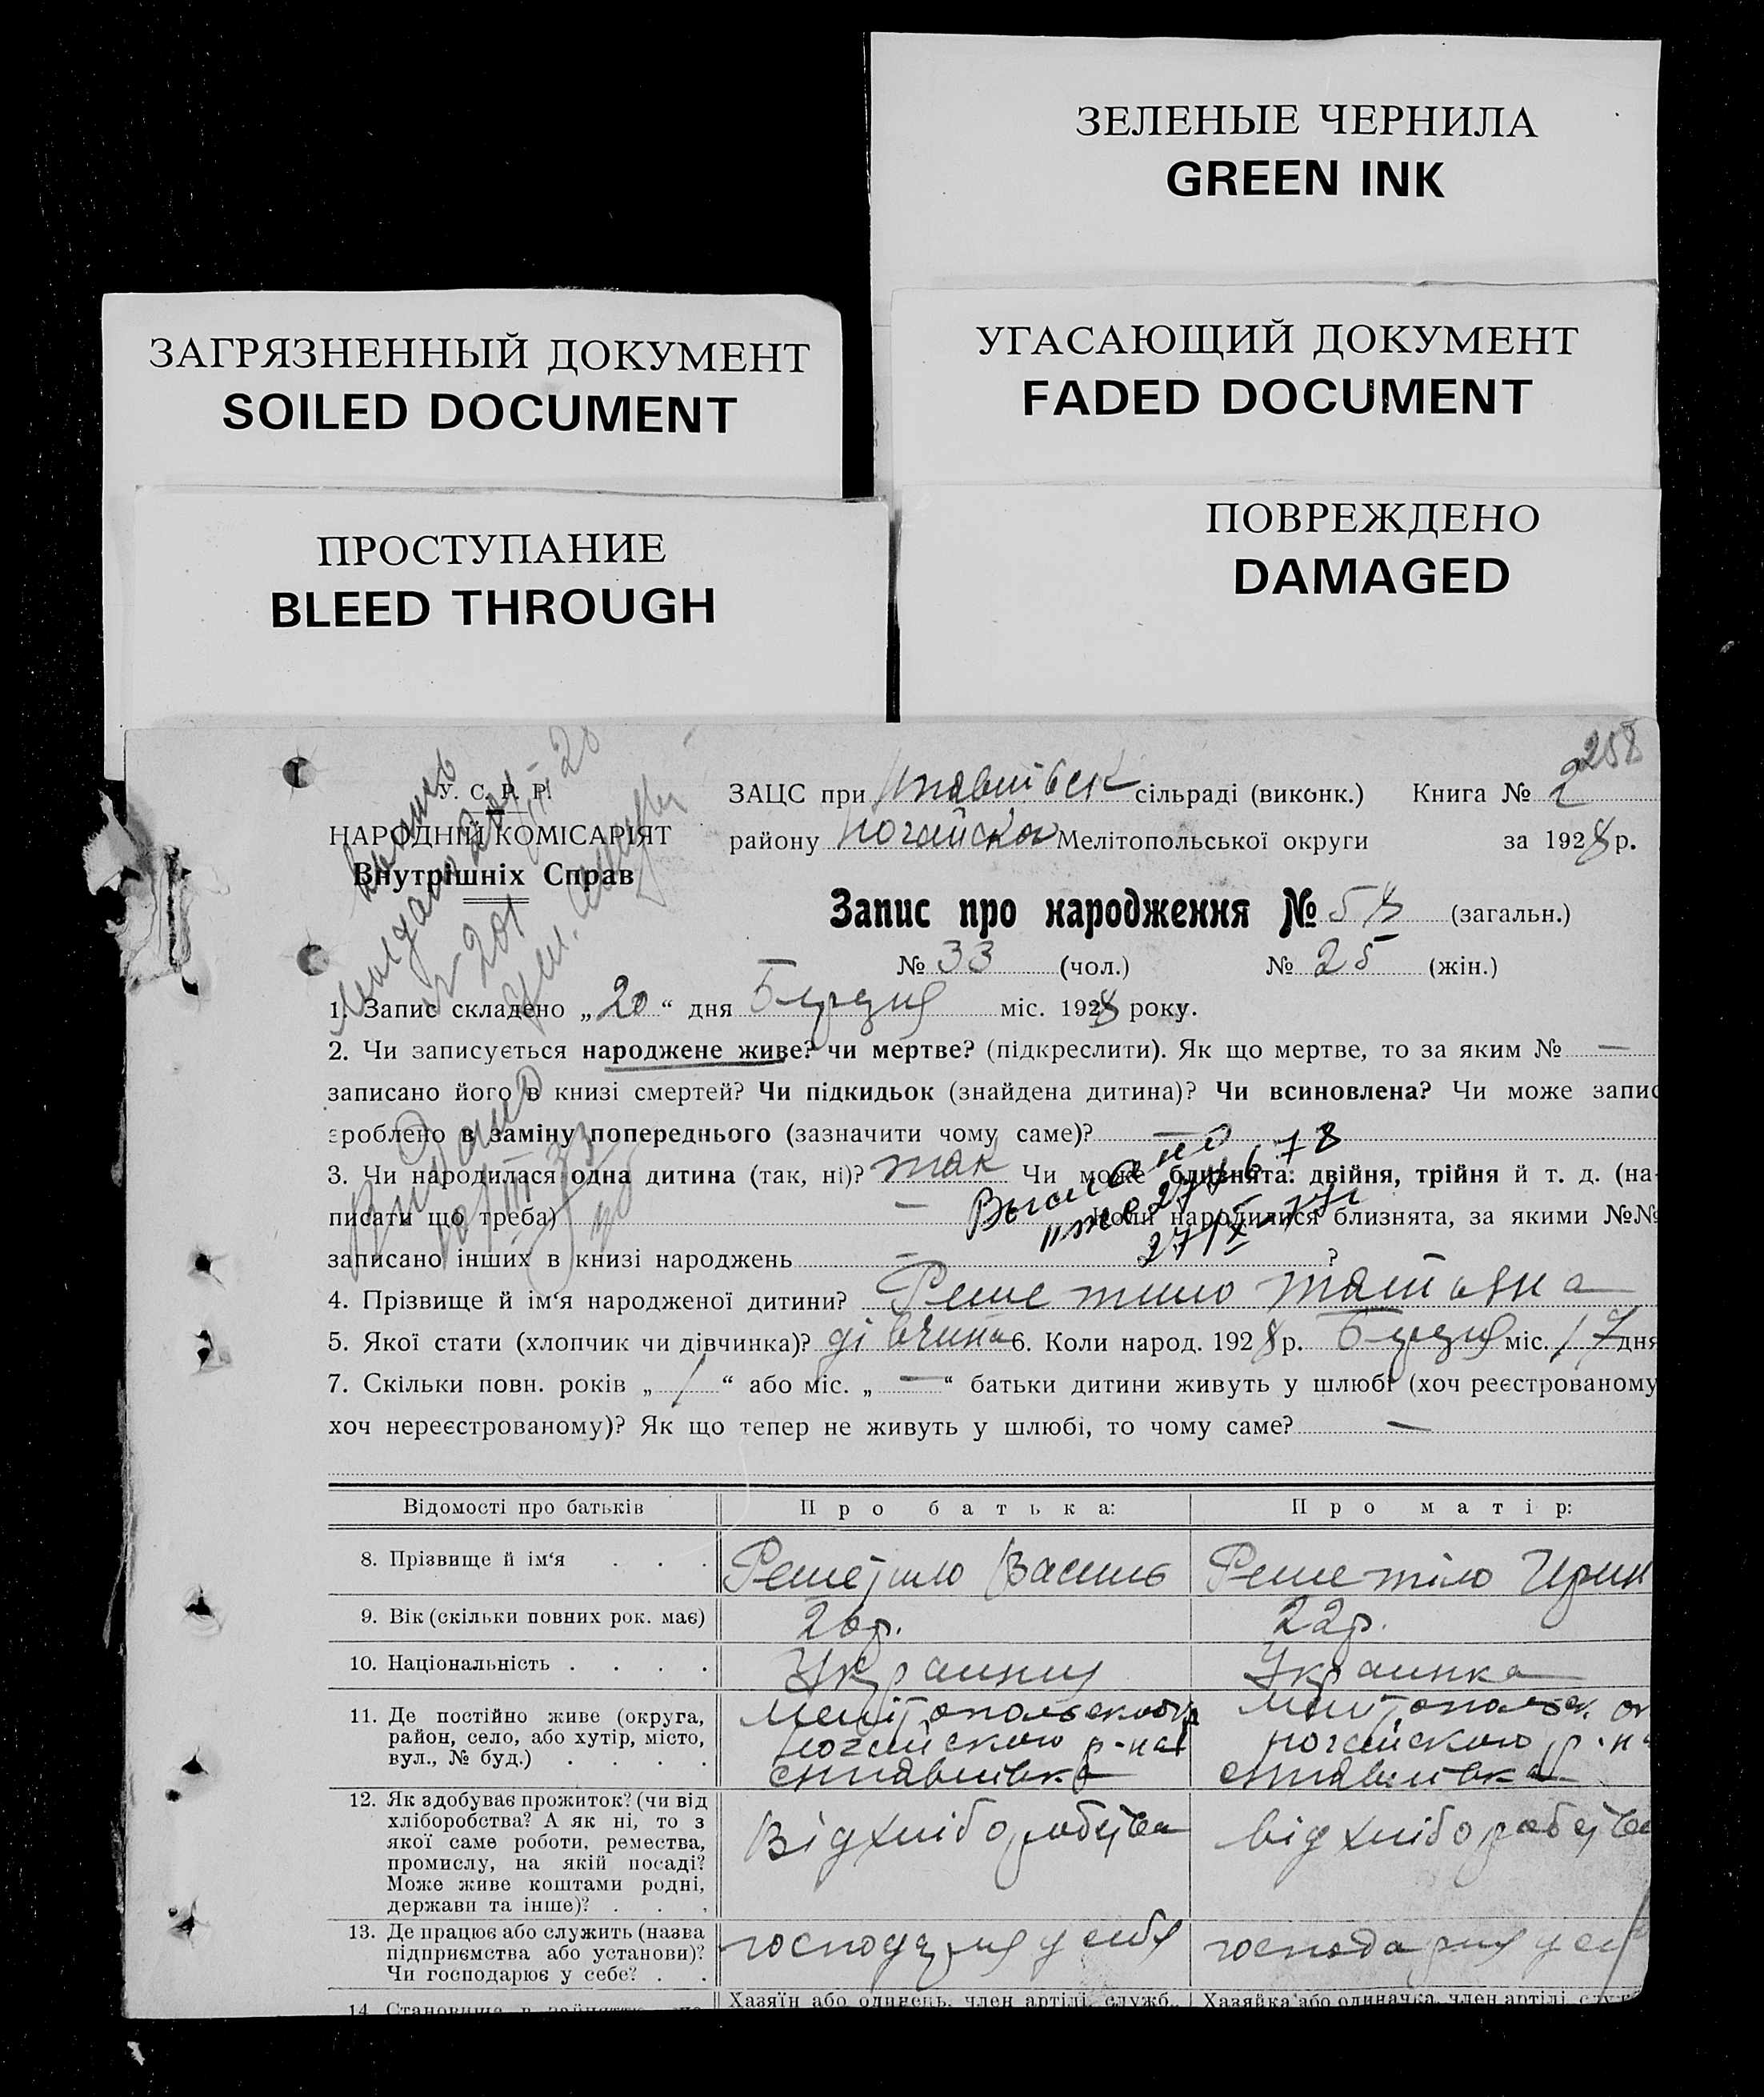 ЗЕЛЕНЫЕ ЧЕРНИЛА
GREEN INK
ЗАГРЯЗНЕННЫЙ ДОКУМЕНТ
SOILED DOCUMENT
УГАСАЮЩИЙ ДОКУМЕНТ
FADED DOCUMENT
ПРОСТУПАНИЕ
BLEED THROUGH
ПОВРЕЖДЕНО
DAMAGED
258
У. С. Р. Р.
НАРОДНІЙ КОМІСАРІЯТ
Внутрішніх Справ
ЗАЦС при сільраді (виконк.) Книга № 2
району Ногайськ Мелітопольської округи за 1928 р.
Запис про народження № 58 (загальн.)
№ 33 (чол.) № 25 (жін.)
1. Запис складено „20“ дня Грудня міс. 1928 року.
2. Чи записується народжене живе? чи мертве? (підкреслити). Як що мертве, то за яким № —
записано його в книзі смертей? Чи підкидьок (знайдена дитина)? Чи всиновлена? Чи може запис
зроблено в заміну попереднього (зазначити чому саме)? —
3. Чи народилася одна дитина (так, ні)? так Чи може близнята: двійня, трійня й т. д. (на-
писати що треба) — Коли народилися близнята, за якими №№
записано інших в книзі народжень — ?
4. Прізвище й ім'я народженої дитини? Решетило Татьяна
5. Якої стати (хлопчик чи дівчинка)? дівчина 6. Коли народ. 1928 р. Грудня міс. 17 дня
7. Скільки повн. років „1“ або міс. „—“ батьки дитини живуть у шлюбі (хоч реєстрованому
хоч нереєстрованому)? Як що тепер не живуть у шлюбі, то чому саме? —
Відомості про батьків Про батька: Про матір:
8. Прізвище й ім'я . . . Решетило Василь Решетіло Ирин
9. Вік (скільки повних рок. має) 26 р. 22 р.
10. Національність . . . . Украинец Украинка
11. Де постійно живе (округа,
район, село, або хутір, місто,
вул., № буд.) . . . .
Мелітопольской
ногайского р-на
Мелітопольск. ок
ногайского р-на
12. Як здобуває прожиток? (чи від
хліборобства? А як ні, то з
якої саме роботи, ремества,
промислу, на якій посаді?
Може живе коштами родні,
держави та інше)? . . .
Від хліборобства
від хліборобства
13. Де працює або служить (назва
підприємства або установи)?
Чи господарює у себе? . .
господарня у себя
господарня у себ
14. Становище в занятті
Хазяїн або одинець, член артілі, служб.
Хазяйка або одиначка, член артілі, служ